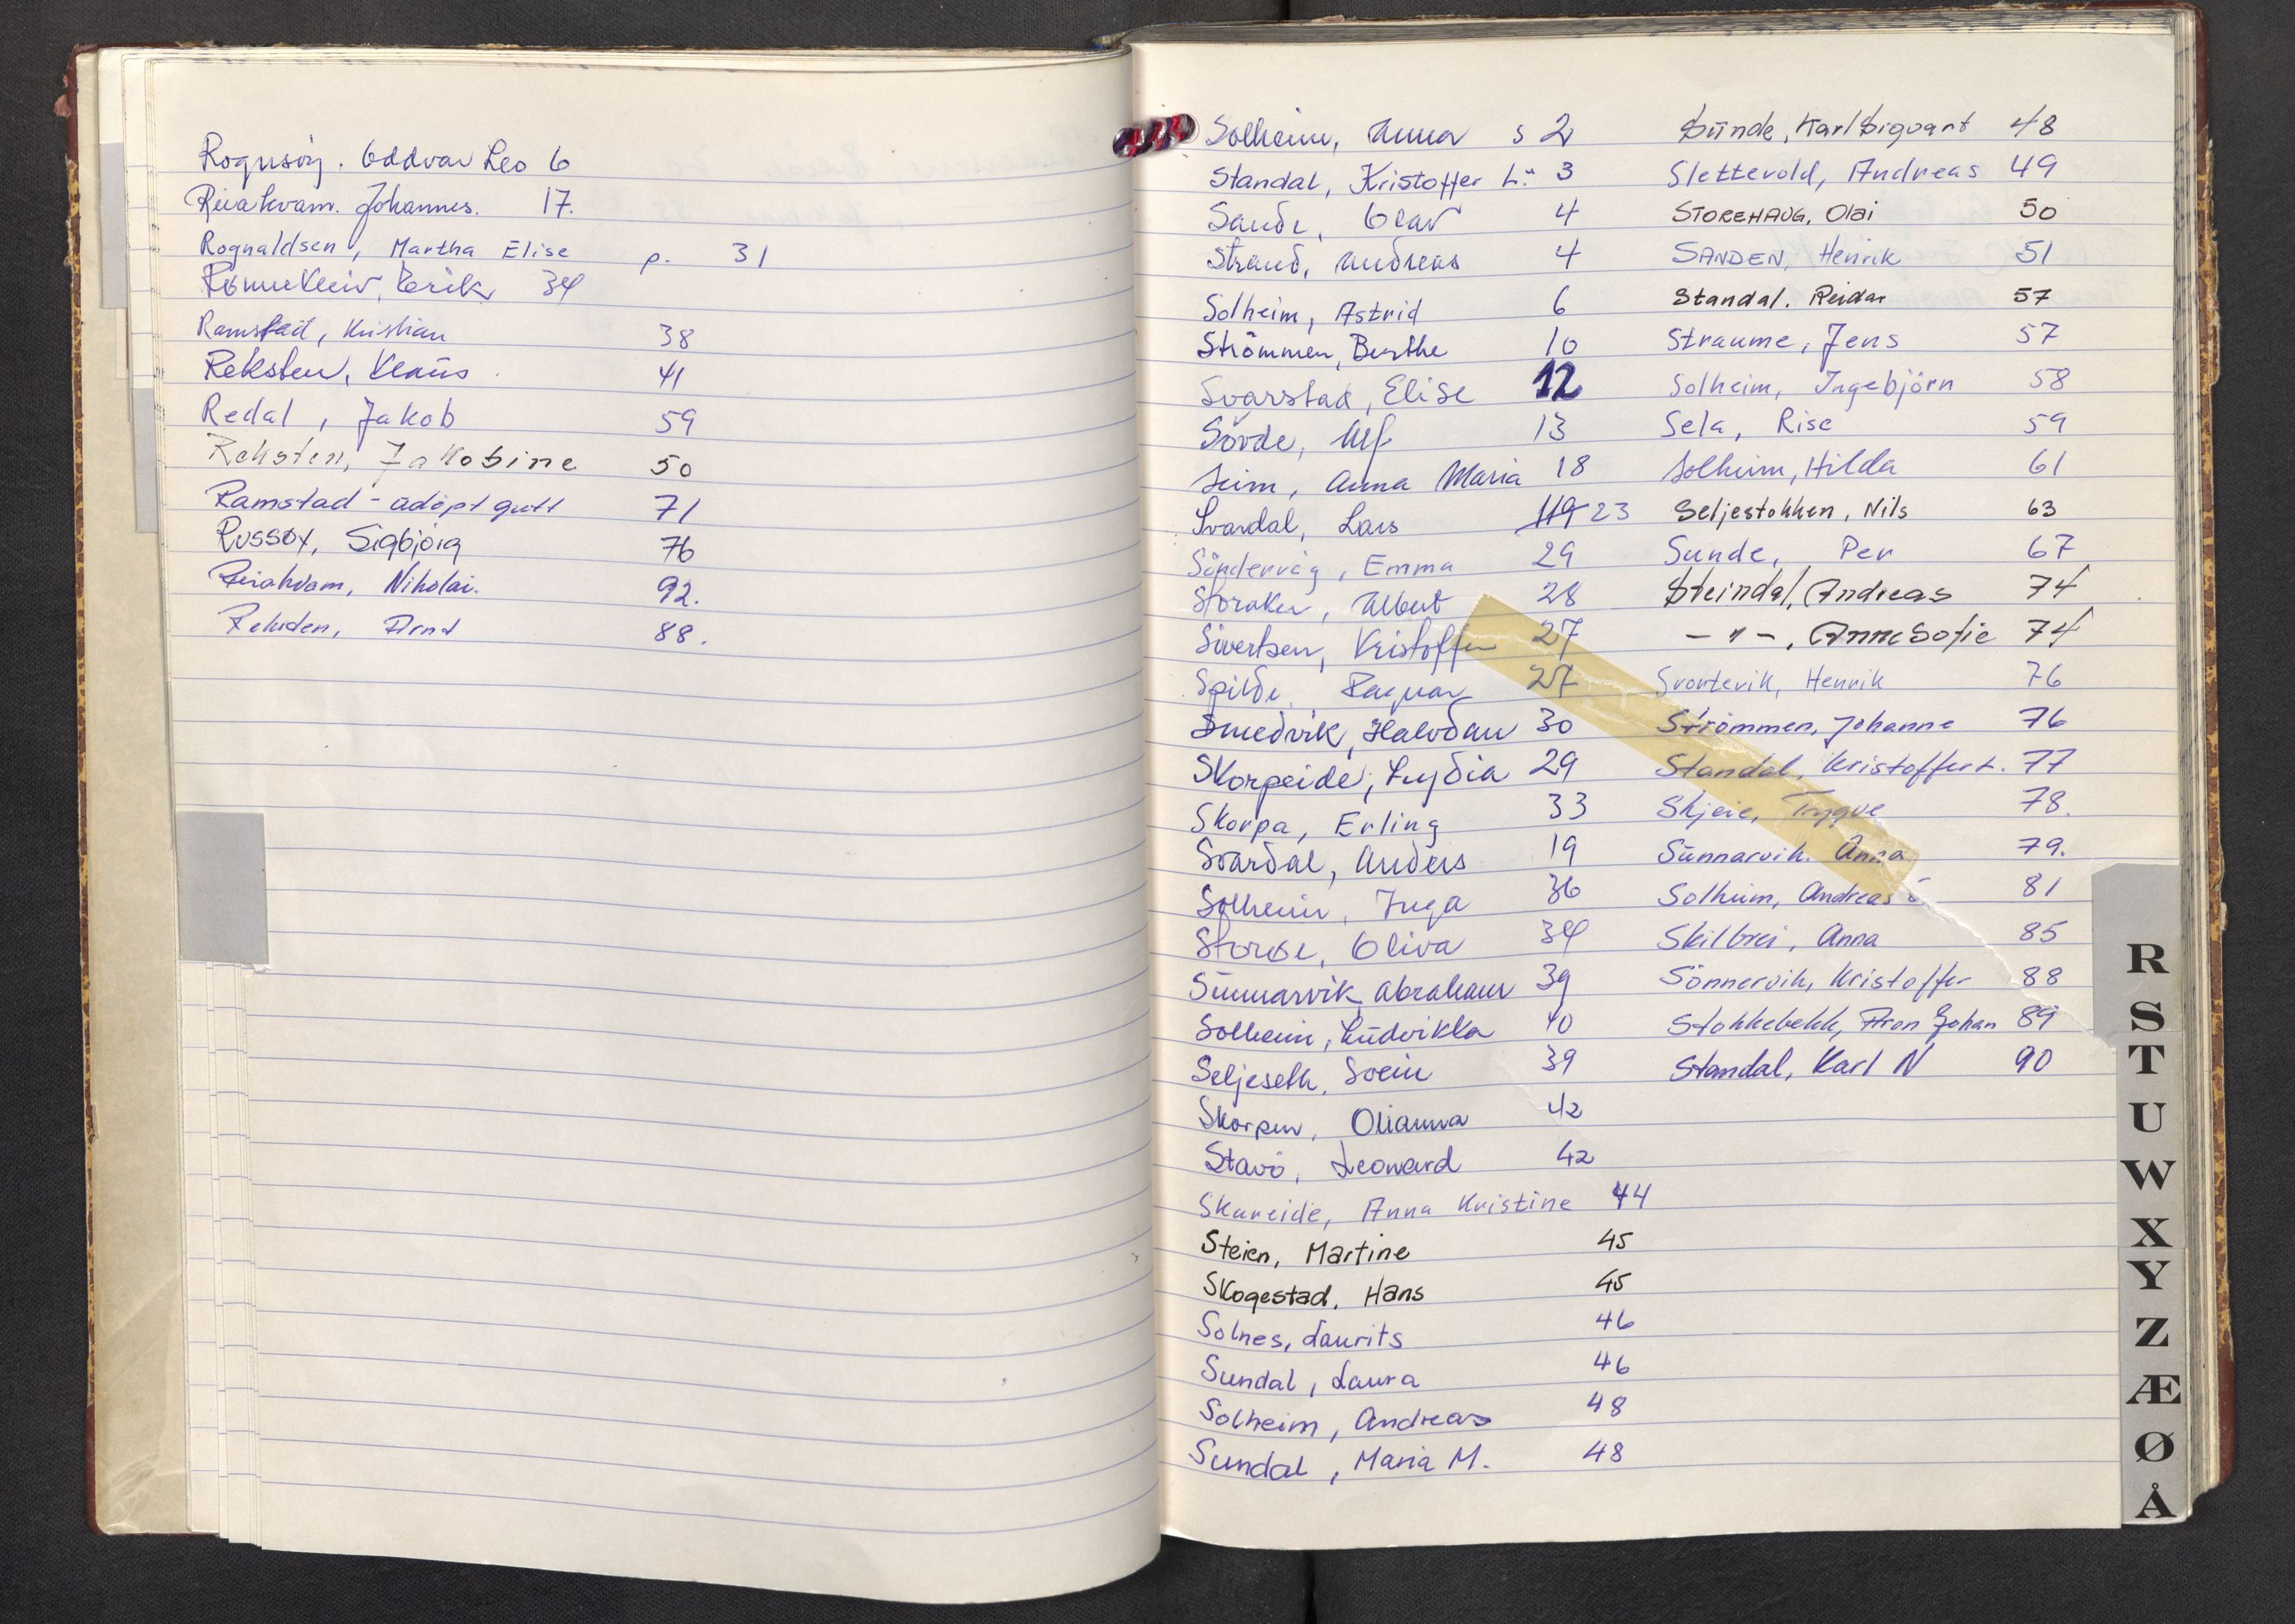 Rognsöy. Oddvar Leo 6
Reiakvam. Johannes. 17.
Rognaldsen, Martha Elise p. 31
Erik 34
Ramstad, Kristian 38
Reksten, Klaus 41
Redal, Jakob 59
Reksten, Jakobine 50
Ramstad - adopt gutt 71
Russöy, Sigbjörg 76
Reiakvam, Nikolai. 92.
Reksten, Arnt 88.
Solheim, Anna s 2
Standal, Kristoffer L. " 3
Sande, Olav 4
Strand, Andreas 4
Solheim, Astrid 6
Strömmen, Berthe 10
Svarstad, Elise 12
Sörde, Alf 13
Seim, Anna Maria 18
Svardal, Lars 119 23
Söndervåg, Emma 29
Storaker, Albert 28
Sivertsen, Kristoffer 27
Spilde, Ragnar 27
Smedvik, Halvdan 30
Skorpeide, Lydia 29
Skorpa, Erling 33
Svardal, Anders 19
Solheim, Inga 36
Storøe, Oliva 34
Sunnarvik, Abraham 39
Solheim, Ludvikka 40
Seljeseth, Svein 39
Skorpen, Olianna 42
Stavö, Leonard 42
Skareide, Anna Kristine 44
Steien, Martine 45
Skogestad, Hans 45
Solnes, Laurits 46
Sundal, Laura 46
Solheim, Andreas 48
Sundal, Maria M. 48
Sunde, Karl Sigvart 48
Slettevold, Andreas 49
STOREHAUG, Olai 50
SANDEN, Henrik 51
Standal. Reidar 57
Straume, Jens 57
Solheim, Ingebjörn 58
Sela, Rise 59
Solheim, Hilda 61
Seljestokken, Nils 63
Sunde, Per 67
Steindal, Andreas 74
— " —, Anne Sofie 74
Svortevik, Henrik 76
Strömmen, Johanne 76
Standal, Kristoffer L. 77
Skjeie, Trygve 78.
Sunnarvik. Anna 79.
Solheim, Andreas S 81
Skilbrei, Anna 85
Sönnervik, Kristoffer 88
Stokkebekk, Aron Johan 89
Standal, Karl N 90
R
S
T
U
W
X
Y
Z
Æ
Ø
Å